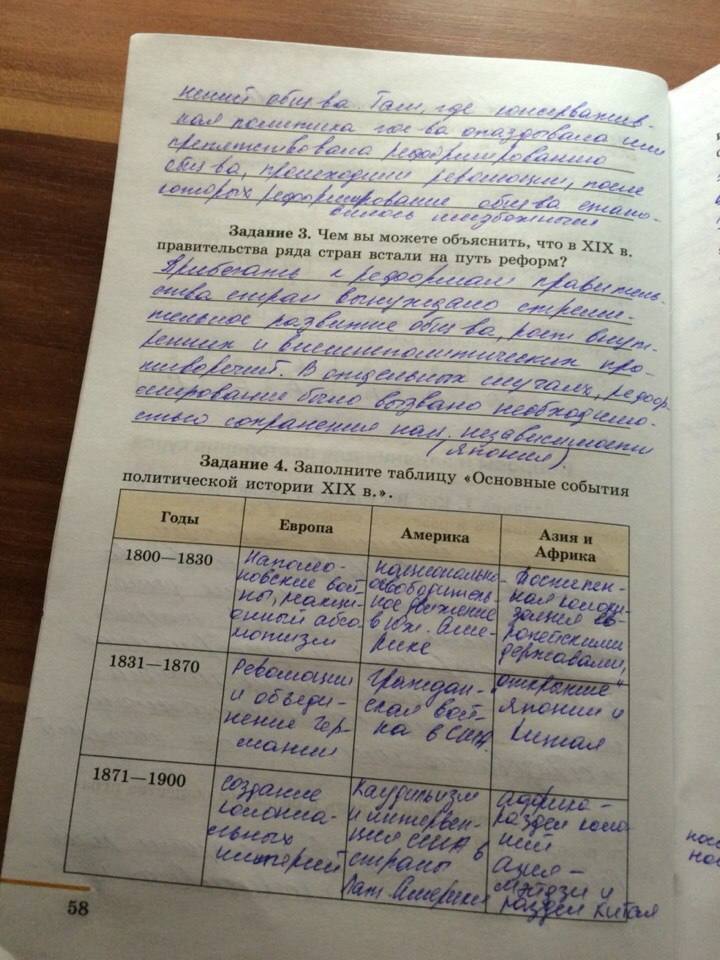 нений общ-ва. Там, где консерватив-
ная политика гос-ва опаздывала или
препятствовала реформированию
общ-ва, происходили революции, после
которых реформирование общ-ва стано-
вилось неизбежным
Задание 3. Чем вы можете объяснить, что в XIX в.
правительства ряда стран встали на путь реформ?
Прибегать к реформам правитель-
ства стран вынуждало стреми-
тельное развитие общ-ва, рост внут-
ренних и внешнеполитических про-
тиворечий. В отдельных случаях, рефор-
мирование было вызвано необходимо-
стью сохранения нац. независимости
(Япония).
Задание 4. Заполните таблицу «Основные события
политической истории XIX в.».
Годы
Европа
Америка
Азия и
Африка
1800—1830
Наполео-
новские вой-
ны, реакци-
онный абсо-
лютизм
национально-
освободитель-
ное движение
в юж. Аме-
рике
Постепен-
ная колони-
зация ев-
ропейскими
державами,
1831—1870
Революции
и объеди-
нение Гер-
мании
Граждан-
ская вой-
на в США.
"открытие"
Японии и
Китая
1871—1900
создание
колониа-
льных
империй
Каудильизм
и интервен-
ция США в
страны
Лат. Америки
Африка -
раздел коло-
ний
Азия -
Мэйдзи и
раздел Китая
58